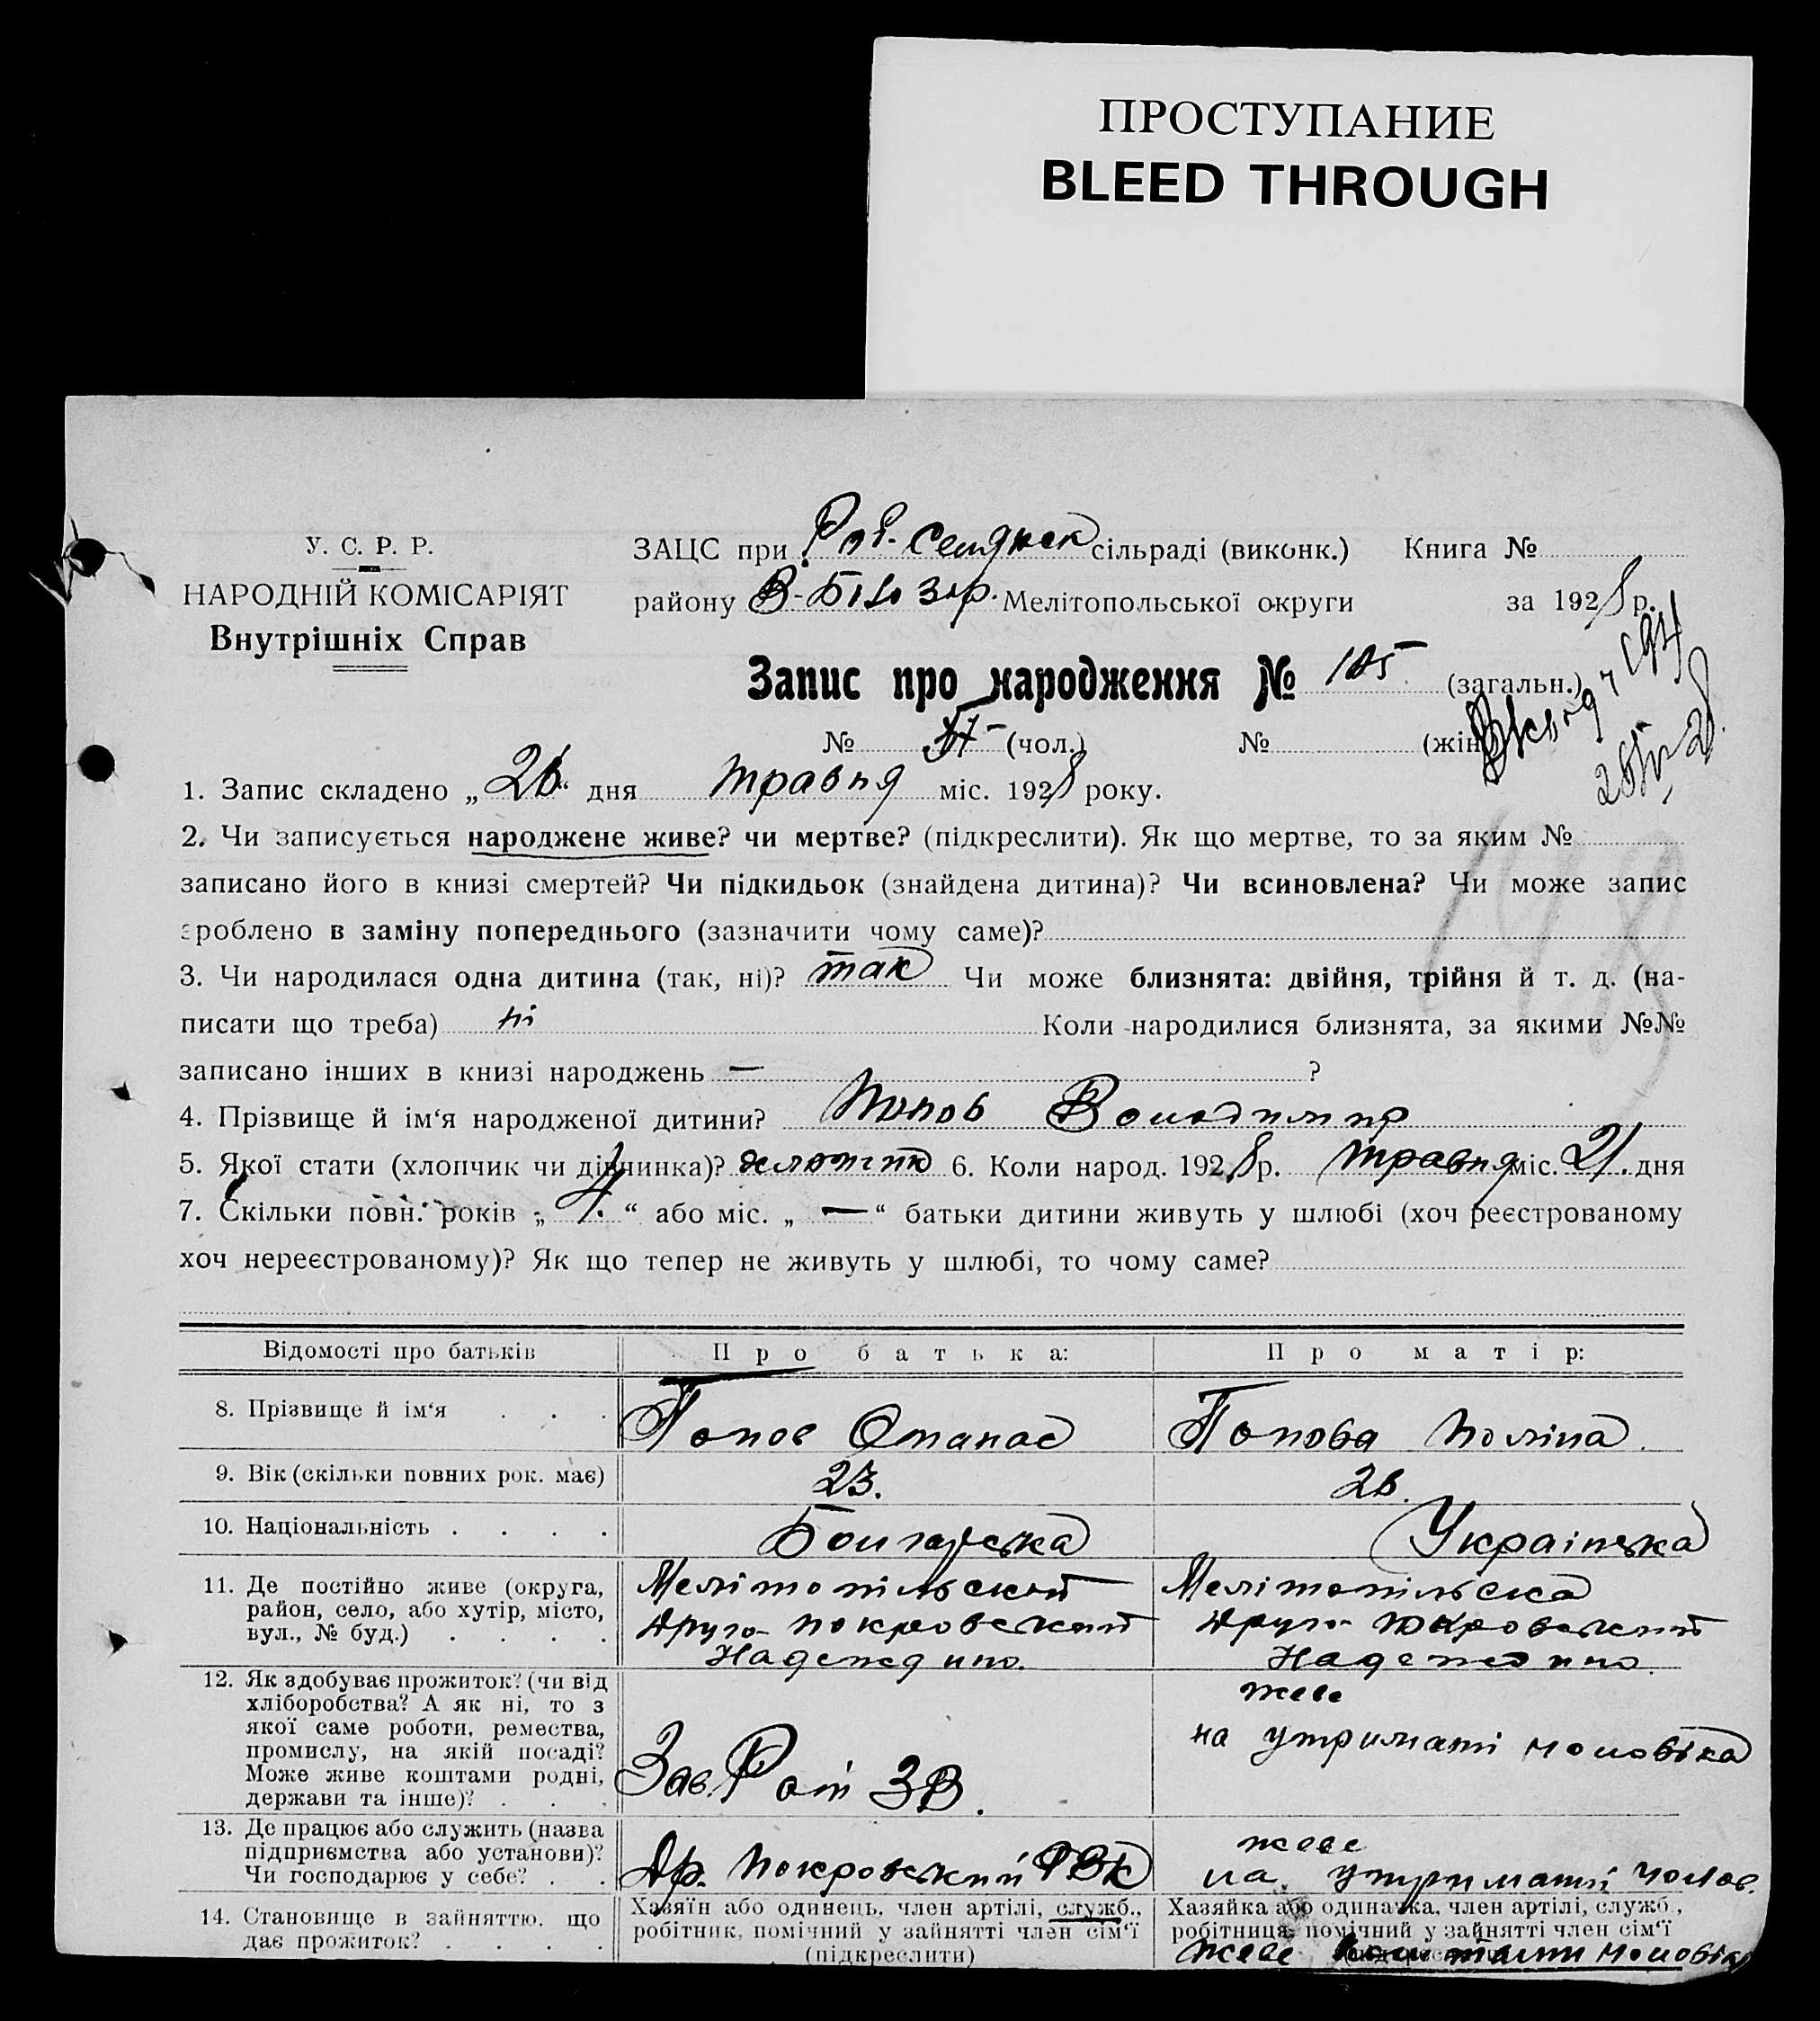 ПРОСТУПАНИЕ
BLEED THROUGH
У. С. Р. Р.
НАРОДНІЙ КОМІСАРІЯТ
Внутрішніх Справ
ЗАЦС при сільраді (виконк.) Книга №
району В-Білозер. Мелітопольської округи за 1928 р.
Запис про народження № 105 (загальн.)
№ (чол.) № (жін
1. Запис складено „26“ дня травня міс. 1928 року.
2. Чи записується народжене живе? чи мертве? (підкреслити). Як що мертве, то за яким №
записано його в книзі смертей? Чи підкидьок (знайдена дитина)? Чи всиновлена? Чи може запис
зроблено в заміну попереднього (зазначити чому саме)?
3. Чи народилася одна дитина (так, ні)? так Чи може близнята: двійня, трійня й т. д. (на-
писати що треба) ні Коли народилися близнята, за якими №№
записано інших в книзі народжень — ?
4. Прізвище й ім‘я народженої дитини? Попов Володимир
5. Якої стати (хлопчик чи дівчинка)? 6. Коли народ. 1928 р. травня міс. 21. дня
7. Скільки повн. років „4.“ або міс. „—“ батьки дитини живуть у шлюбі (хоч реєстрованому
хоч нереєстрованому)? Як що тепер не живуть у шлюбі, то чому саме?
Відомості про батьків Про батька: Про матір:
8. Прізвище й ім‘я . . . Попов Опанас Попова Поліна
9. Вік (скільки повних рок. має) 23. 26.
10. Національність . . . . Болгарська Українська
11. Де постійно живе (округа, район, село, або хутір, місто, вул., № буд.) . . . .
Мелітопільський
Друго-Покровський
Надеждино.
Мелітопільська
Друго-Покровський
Надеждино.
12. Як здобуває прожиток? (чи від хліборобства? А як ні, то з якої саме роботи, ремества, промислу, на якій посаді? Може живе коштами родні, держави та інше)? . . .
Зав. Рай ЗВ.
живе
на утриманні чоловіка
13. Де працює або служить (назва підприємства або установи)? Чи господарює у себе? . .
Др. Покровський РВК
живе
на утриманні чолов.
14. Становище в зайняттю, що дає прожиток? . . . .
Хазяїн або одинець, член артілі, служб., робітник, помічний у зайнятті член сім‘ї (підкреслити)
Хазяйка або одиначка, член артілі, служб., робітниця, помічний у зайнятті член сім‘ї
живе коштами чоловіка